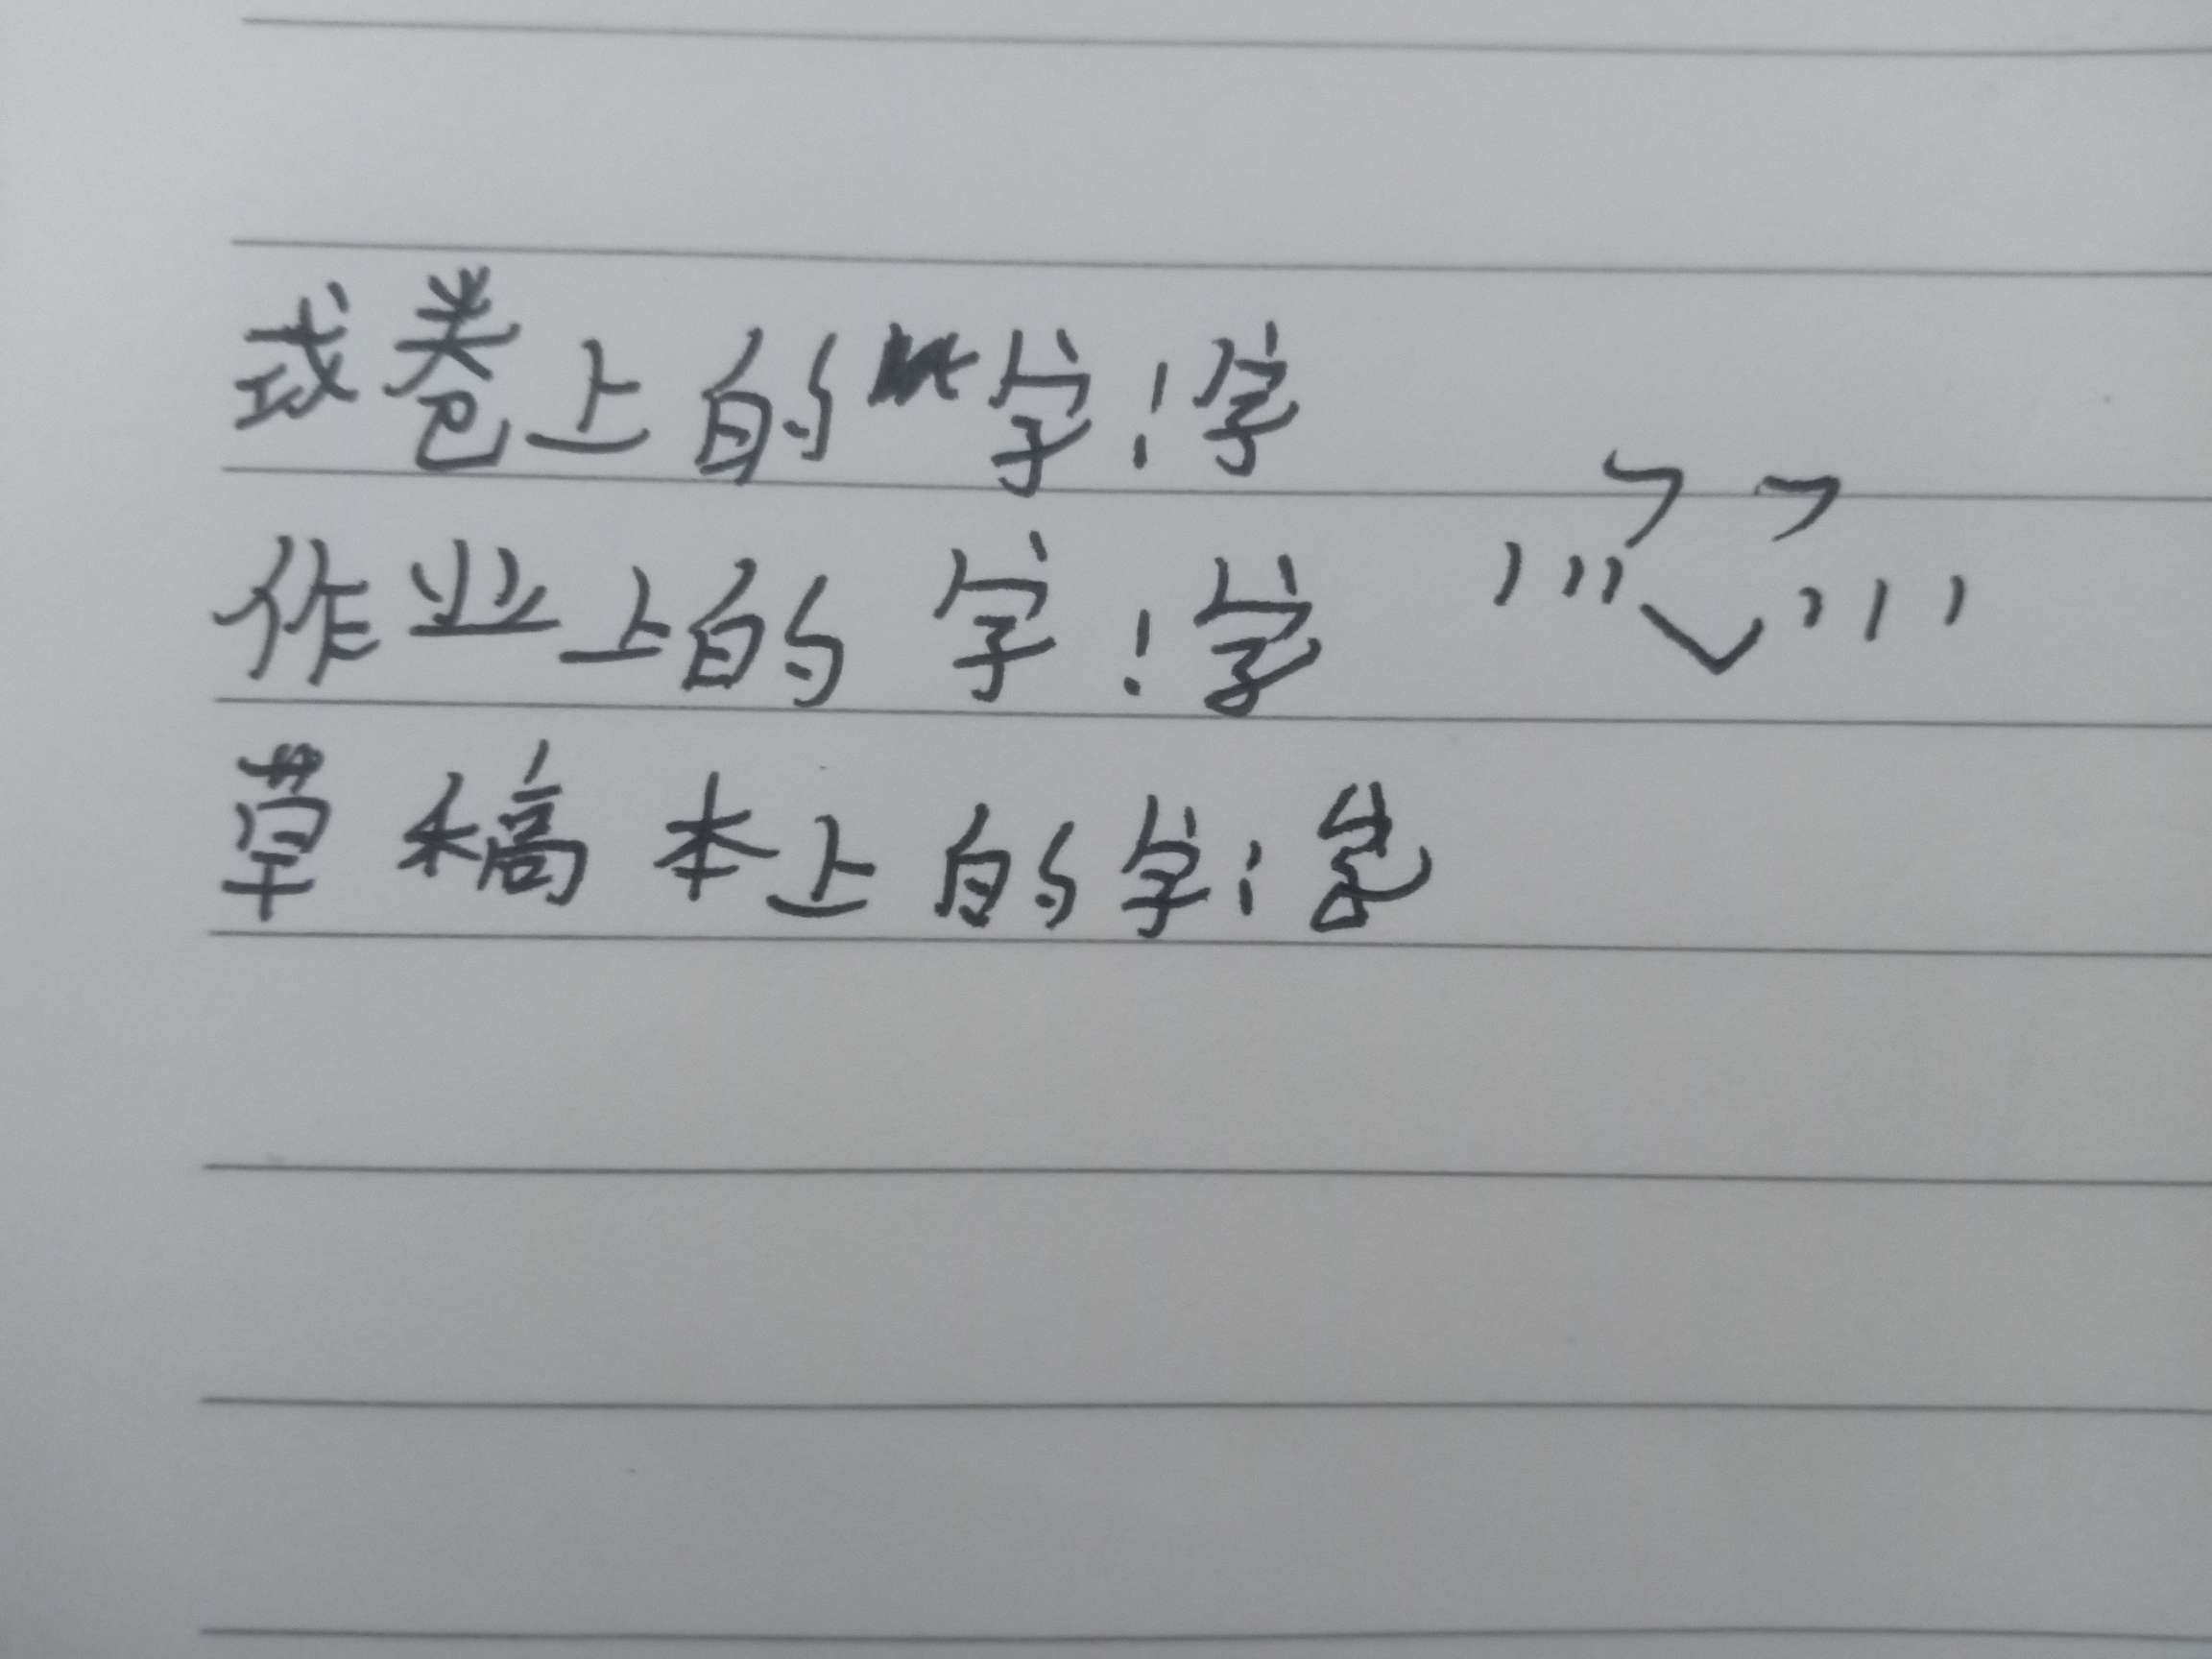 式卷上的字:字
作业上的字:字
草稿本上的字:字